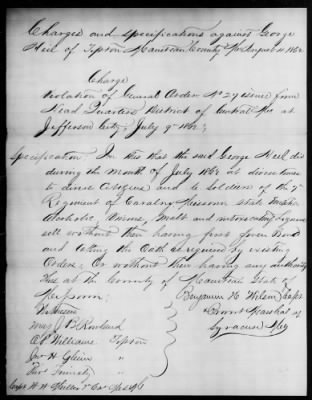 Charges and specifications against George
Keil of Tipton Moniteau County Mo August 4 1862
Charge
Violation of General Order No 27 issued from
Head Quarters District of Central Mo at
Jefferson City July 9th 1862;
Specification: In this that the said George Keil did
during the month of July 1862 at divers times
to divers Citizens and to Soldiers of the 7th
Regiment of Cavalry Missouri State Militia
Alcoholic, Vinous, Malt and intoxicating liquors
sell without then having first given Bond
and taking the Oath as required by existing
Orders; Or without their having any authority
This at the County of Moniteau State of
Missouri;
Benjamin H Wilson Capt
Witnesses
Provost Marshal at
Maj J B Rowland
Syracuse Mo
A P Williams Tipton
H "
"
Capt W H